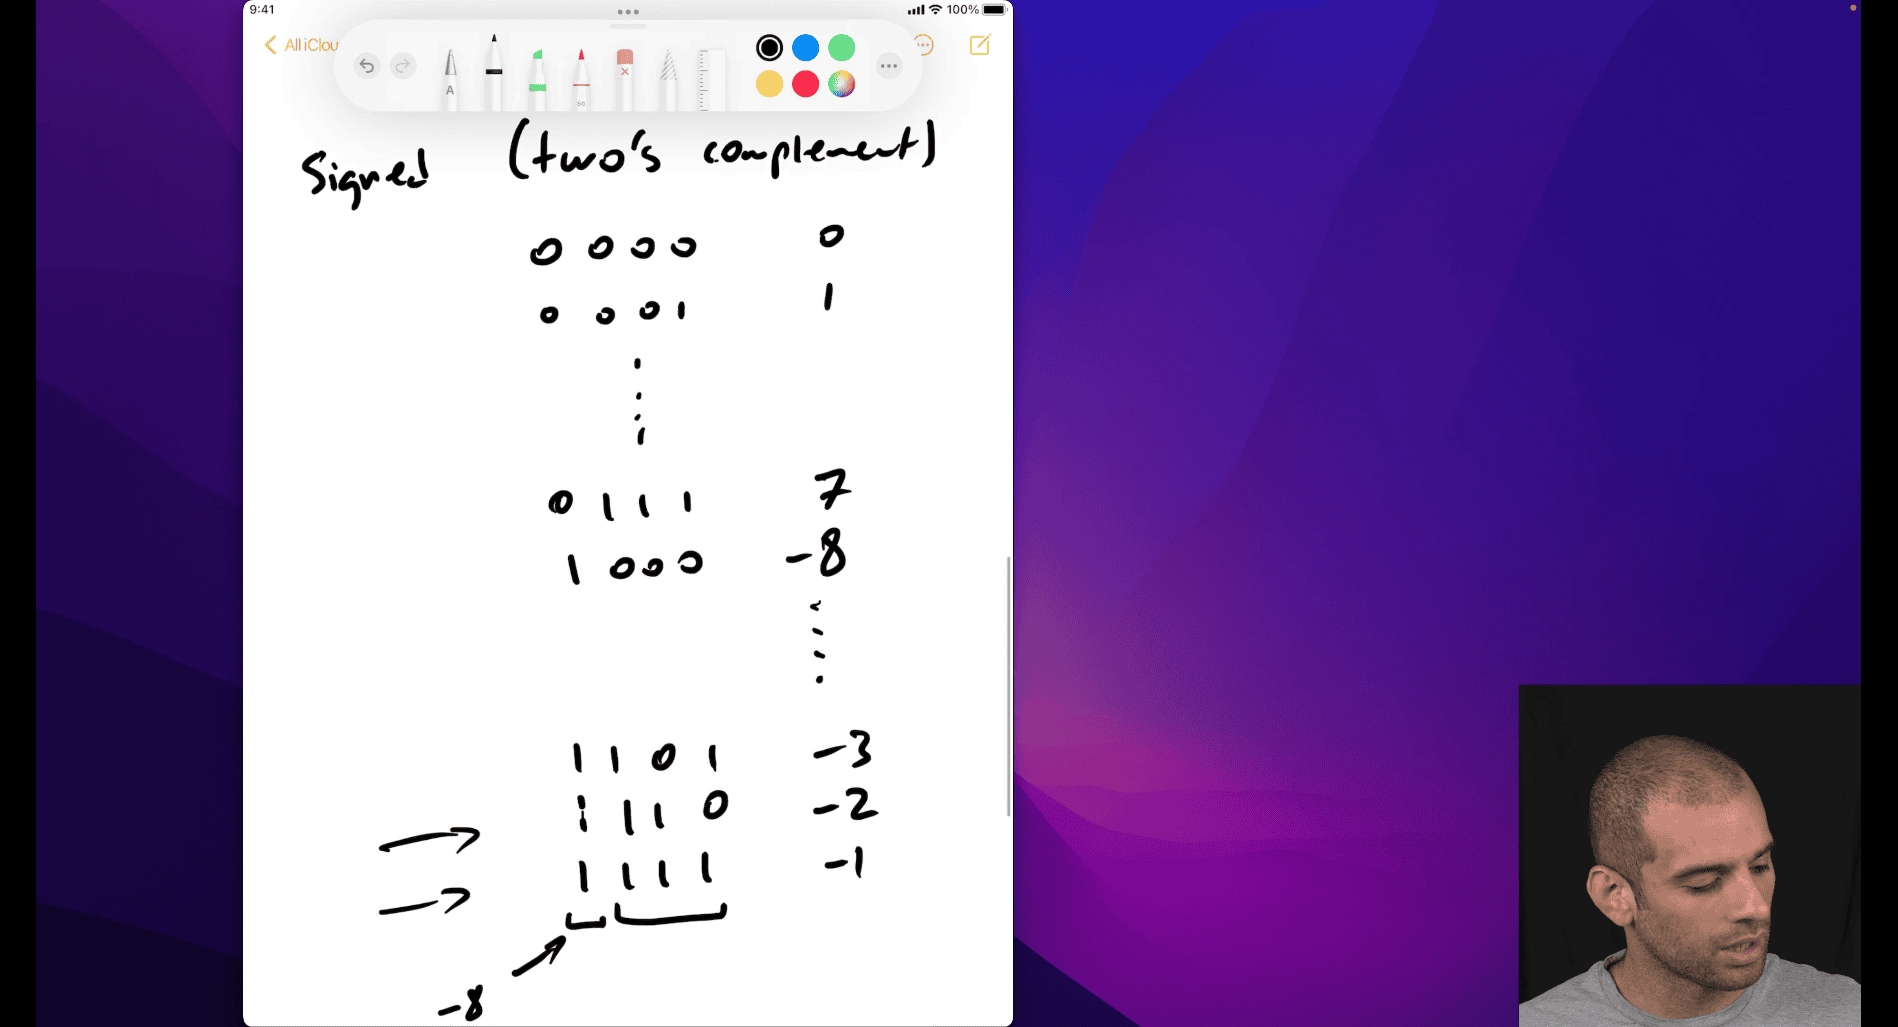 9:41 100%
All iClou
A 50
Signed (two's complement)
0 0 0 0 0
0 0 0 1 1
0 1 1 1 7
1 0 0 0 -8
1 1 0 1 -3
1 1 1 0 -2
1 1 1 1 -1
-8